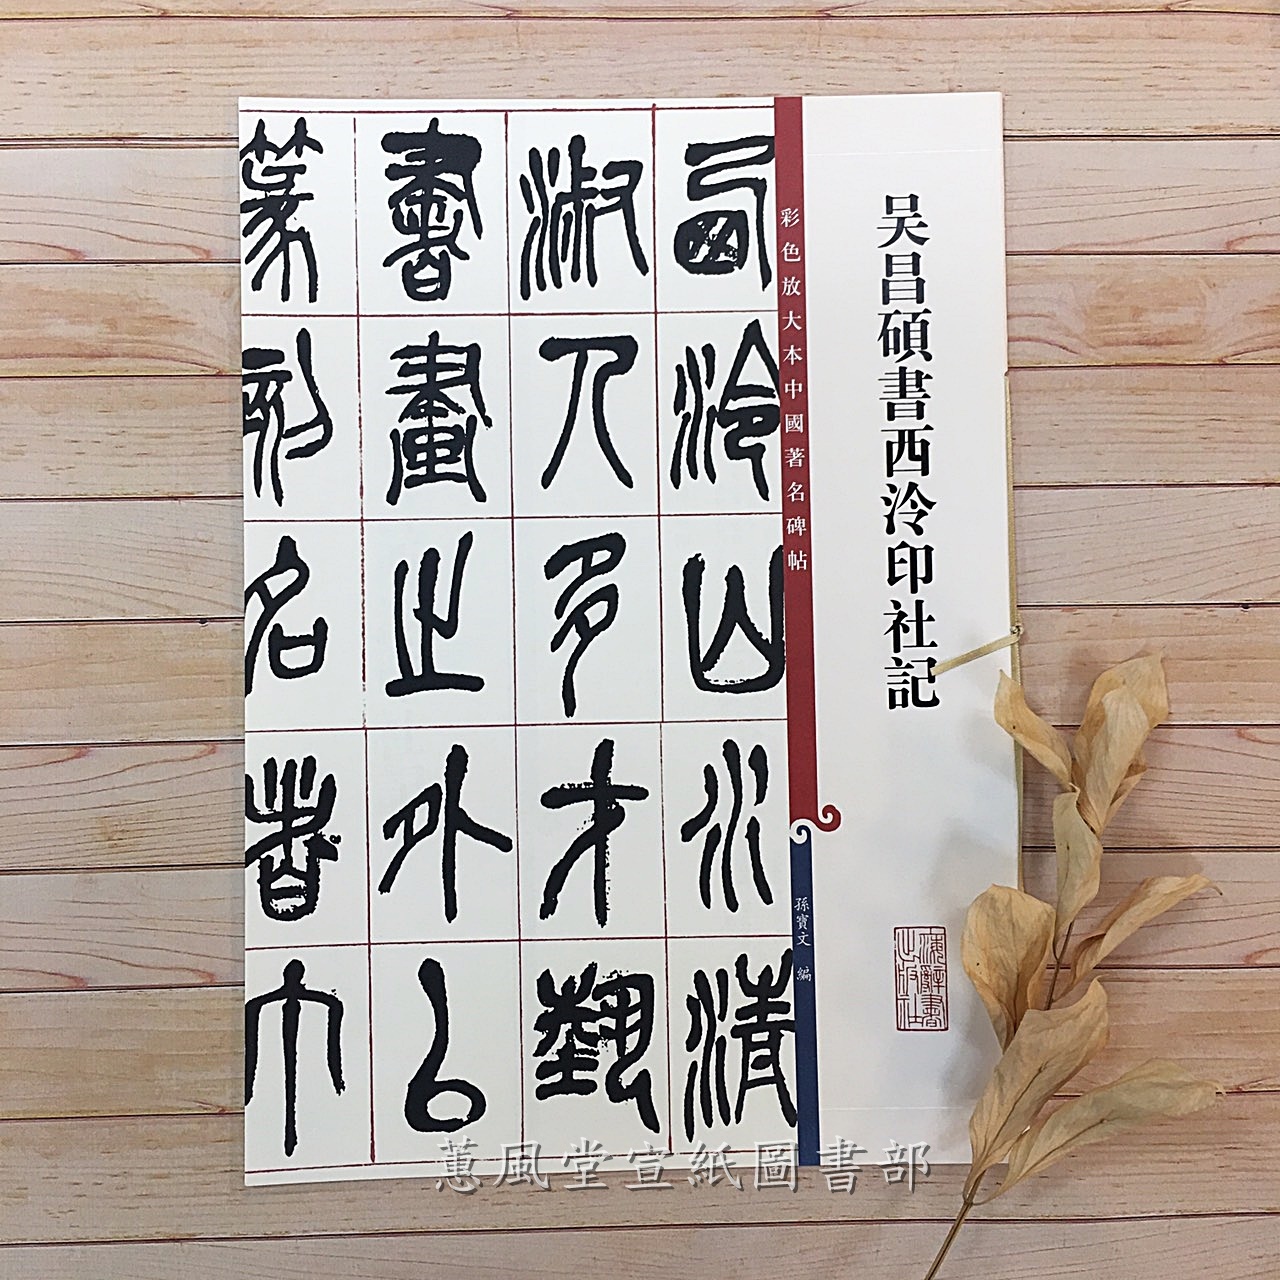 吴昌碩書西泠印社記
彩色放大本中國著名碑帖
孫寶文 編
海辭書出版社
西泠山水清
淑人多才藝
書畫止外以
篆刻名者巾
蕙風堂宣紙圖書部